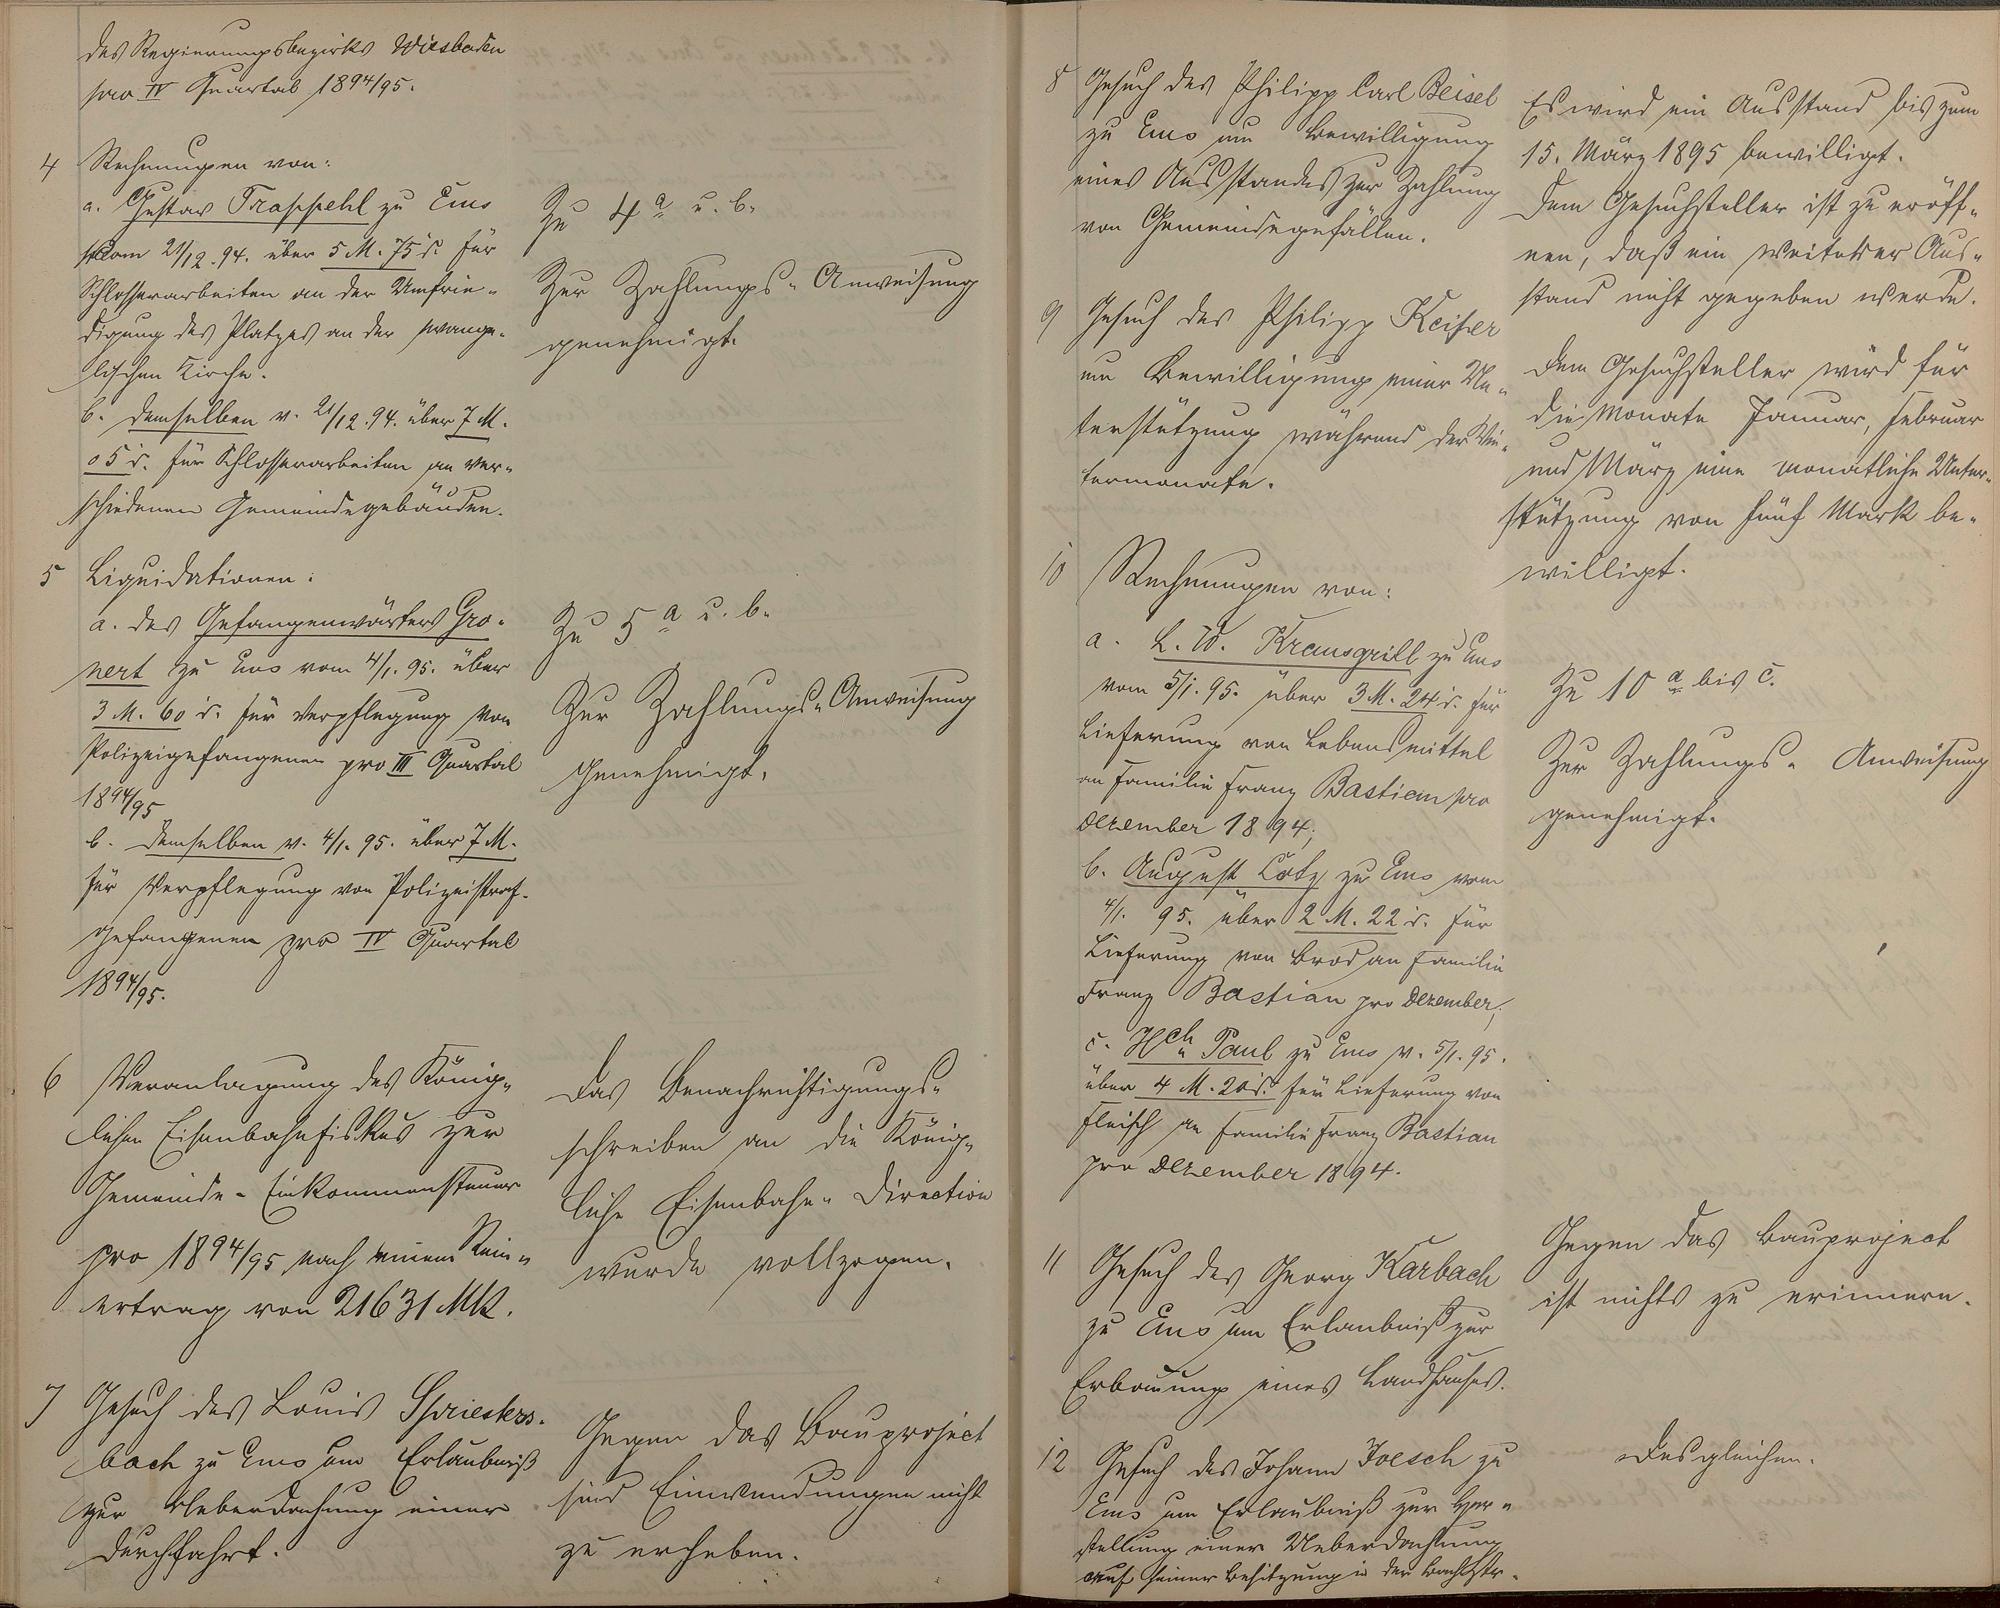 des Regierungsbezirks Wiesbaden
pro IV Quartal 1894/95.
4 Rechnungen von:
a. Gustav Trappehl zu Ems
vom 21/12. 94. über 5 M. 75 d. für
Schlosserarbeiten an der Umfrie-
digung des Platzes an der evange-
lischen Kirche.
b. demselben v. 21/12. 94. über 7 M.
05 d. für Schlosserarbeiten an ver-
schiedenen Gemeindegebäuden.
Zu 4 a u. b.
Zur Zahlungs-Anweisung
genehmigt.
5 Liquidationen:
a. des Gefangenwärters Gro-
nert zu Ems vom 4/1. 95. über
3 M. 60 d. für Verpflegung von
Polizeigefangenen pro III Quartal
1894/95
b. demselben v. 4/1. 95. über 7 M.
für Verpflegung von Polizeistraf-
gefangenen pro IV Quartal
1894/95.
Zu 5 a u. b.
Zur Zahlungs-Anweisung
genehmigt.
6 Veranlagung des König-
lichen Eisenbahnfiskus zur
Gemeinde-Einkommensteuer
pro 1894/95 nach einem Rein-
ertrag von 21631 Mk.
Das Benachrichtigungs-
schreiben an die König-
liche Eisenbahn-Direction
wurde vollzogen.
7 Gesuch des Louis Spriesters-
bach zu Ems um Erlaubniß
zur Ueberdachung einer
Durchfahrt.
Gegen das Bauproject
sind Einwendungen nicht
zu erheben.
8 Gesuch des Philipp Carl Beisel
zu Ems um Bewilligung
eines Ausstandes zur Zahlung
von Gemeindegefällen.
Es wird ein Ausstand bis zum
15. März 1895 bewilligt.
Dem Gesuchsteller ist zu eröff-
nen, daß ein weiterer Aus-
stand nicht gegeben werde.
9 Gesuch des Philipp Keiser
um Bewilligung einer Un-
terstützung während der Win-
termonate.
Dem Gesuchsteller wird für
die Monate Januar, Februar
und März eine monatliche Unter-
stützung von fünf Mark be-
willigt.
10 Rechnungen von:
a. L. W. Krausgrill zu Ems
vom 5/1. 95. über 3 M. 24 d. für
Lieferung von Lebensmittel
an Familie Franz Bastian pro
Dezember 1894;
b. August Lotz zu Ems vom
4/1. 95. über 2 M. 22 d. für
Lieferung von Brod an Familie
Franz Bastian pro Dezember;
c. Hch. Paul zu Ems v. 5/1. 95.
über 4 M. 20 d. für Lieferung von
Fleisch an Familie Franz Bastian
pro Dezember 1894.
Zu 10 a bis c.
Zur Zahlungs-Anweisung
genehmigt.
11 Gesuch des Georg Karbach
zu Ems um Erlaubniß zur
Erbauung eines Landhauses.
Gegen das Bauproject
ist nichts zu erinnern.
12 Gesuch des Johann Joesch zu
Ems um Erlaubniß zur Her-
stellung einer Ueberdachung
auf seiner Besitzung in der Bachstr.
Desgleichen.